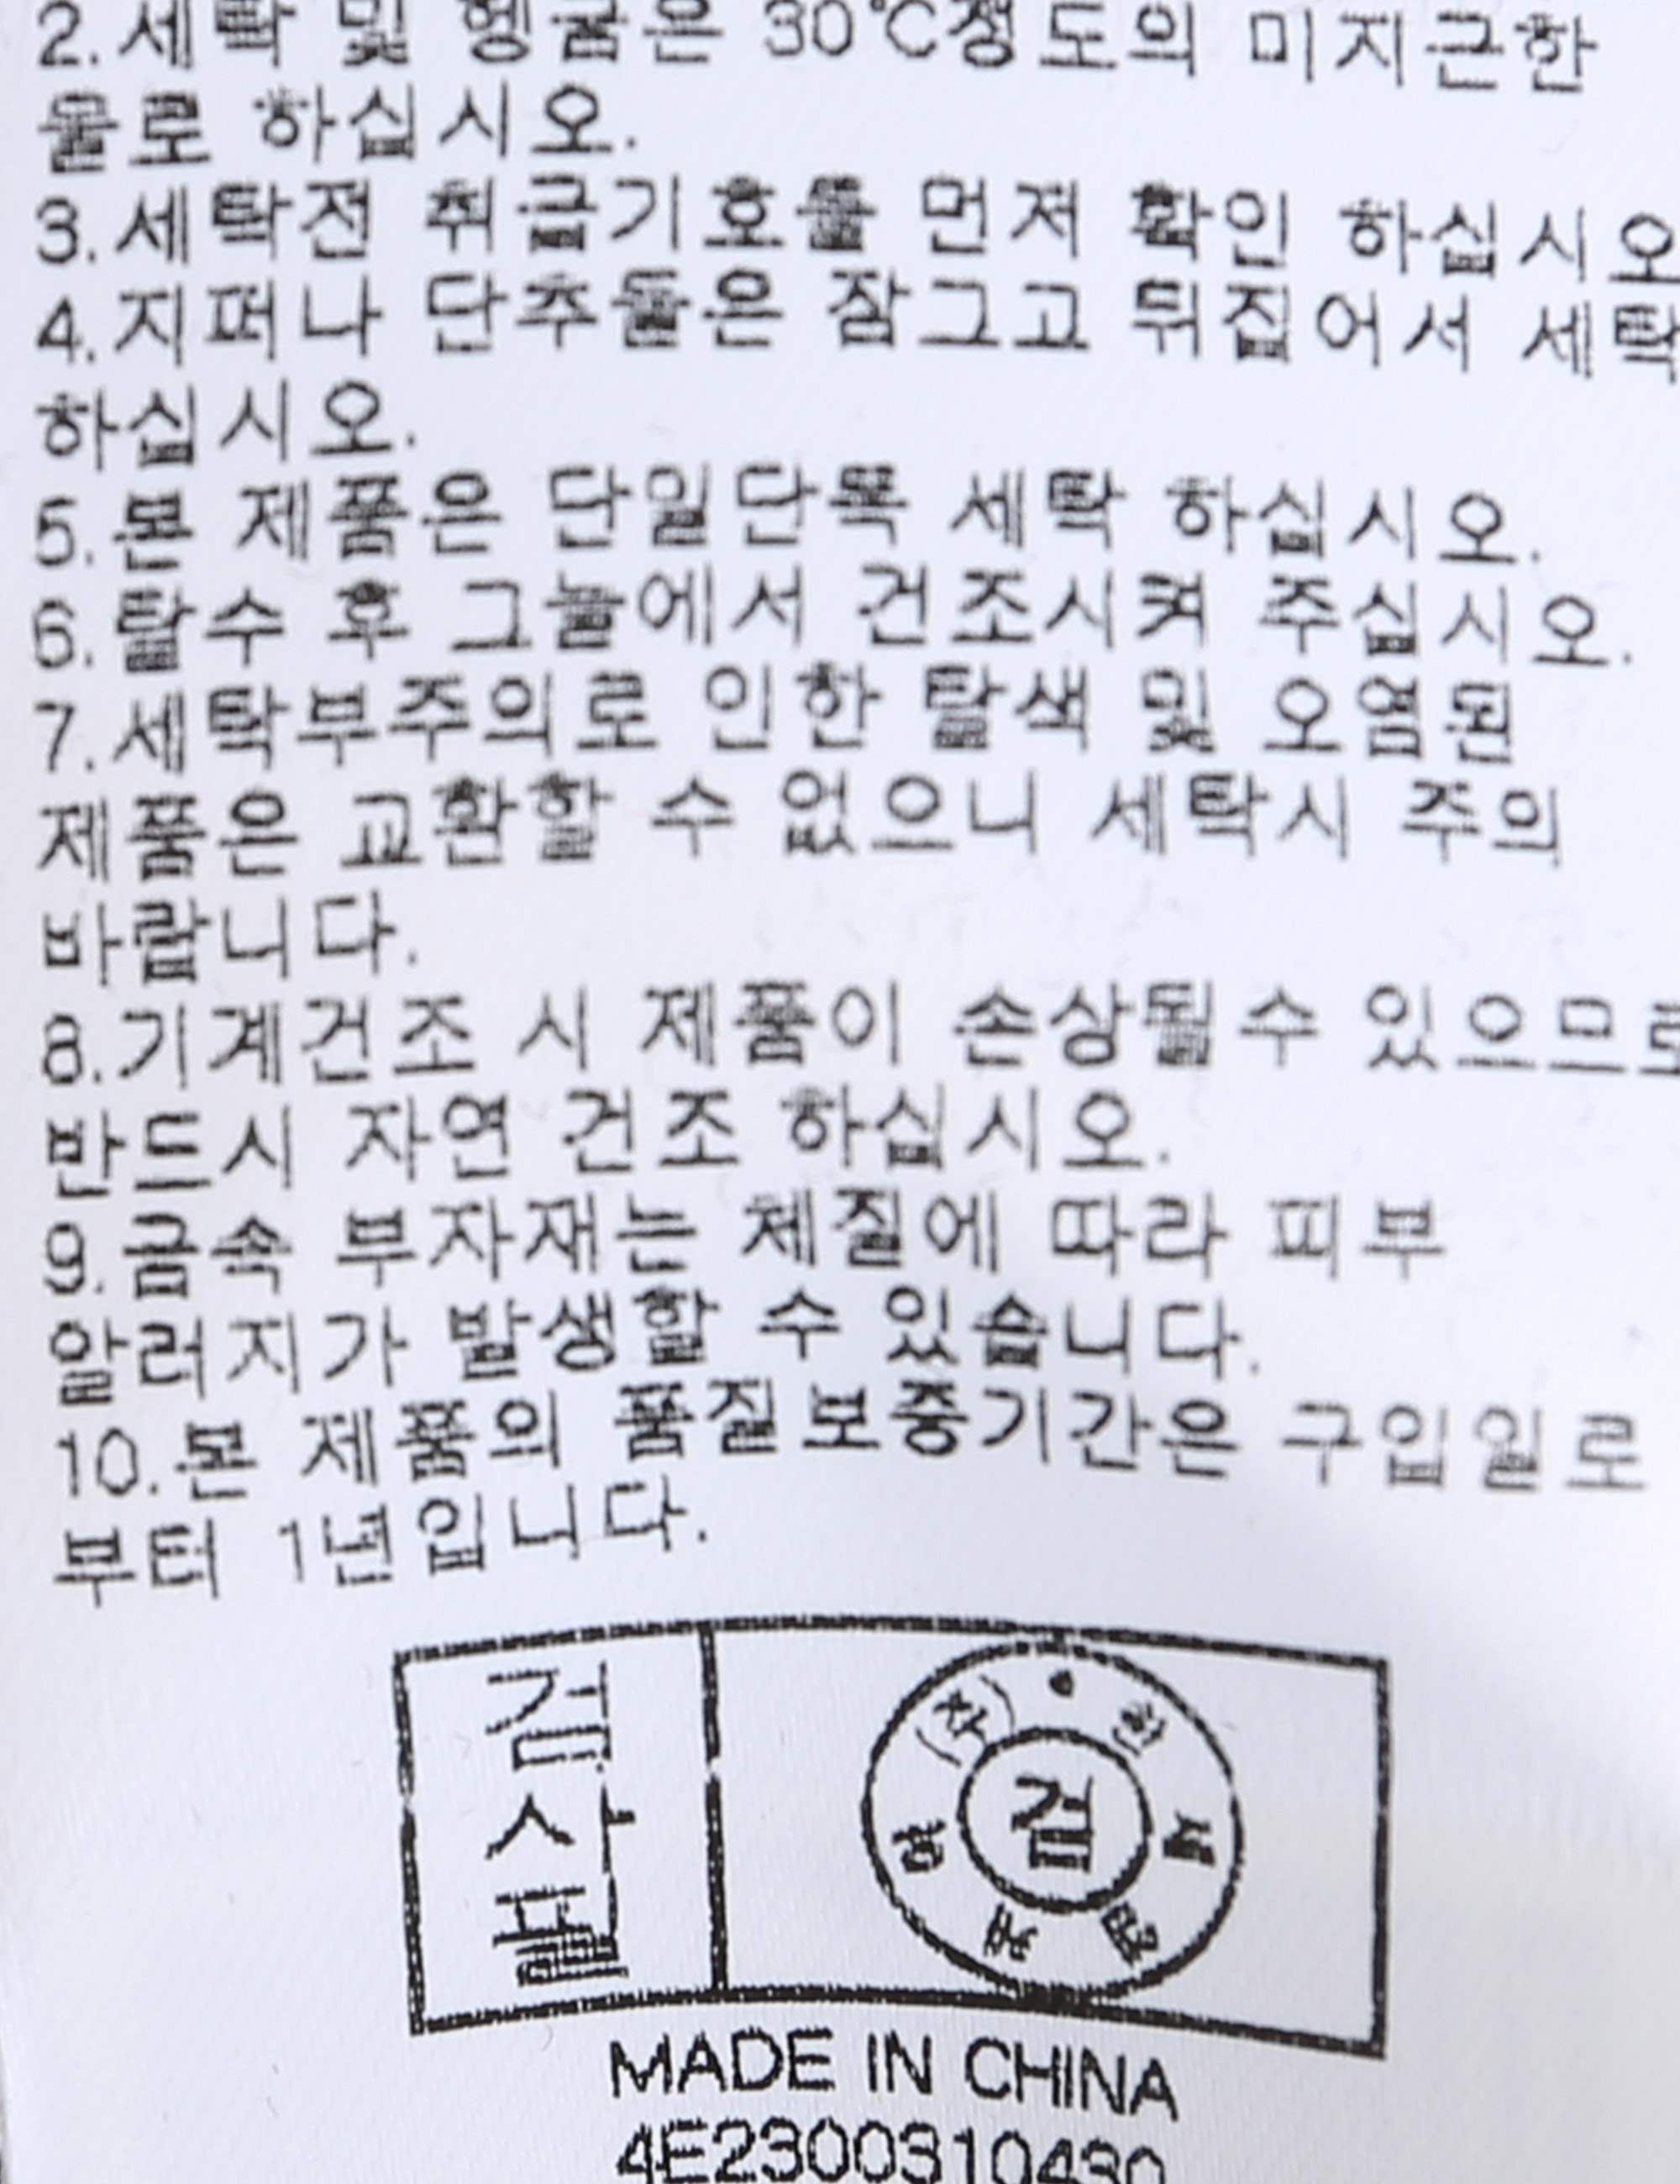 2.세탁 및 헹굼은 30℃정도의 미지근한
물로 하십시오.
3.세탁전 취급기호를 먼저 확인 하십시오
4.지퍼나 단추들은 잠그고 뒤집어서 세탁
하십시오.
5.본 제품은 단일단독 세탁 하십시오.
6.탈수 후 그늘에서 건조시켜 주십시오.
7.세탁부주의로 인한 탈색 및 오염된
제품은 교환할 수 없으니 세탁시 주의
바랍니다.
8.기계건조 시 제품이 손상될수 있으므로
반드시 자연 건조 하십시오.
9.금속 부자재는 체질에 따라 피부
알러지가 발생할 수 있습니다.
10.본 제품의 품질보증기간은 구입일로
부터 1년입니다.
검사필
(주)한세엠케이
검
MADE IN CHINA
4E2300310430